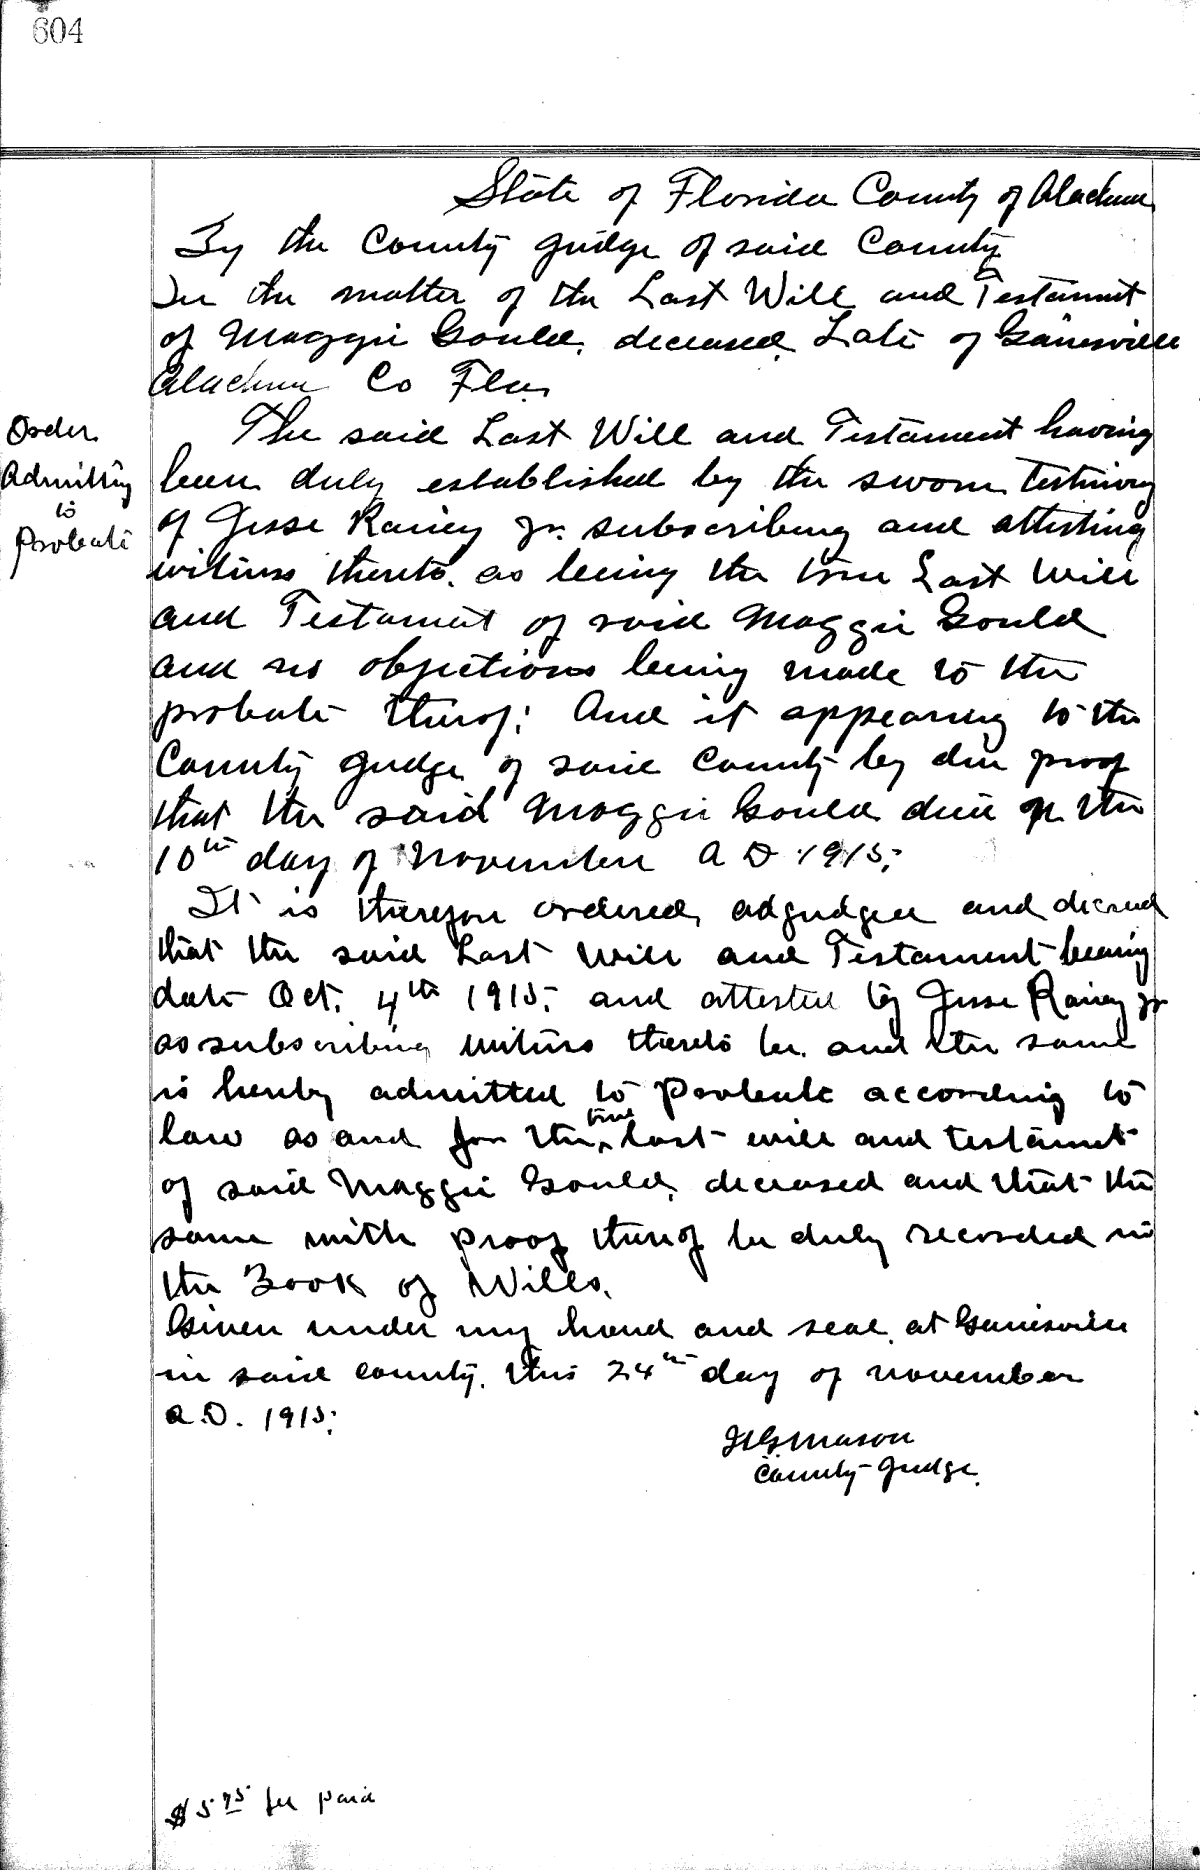 604
State of Florida County of Alachua
By the County Judge of said County
In the matter of the Last Will and Testament
of Maggie Gould, deceased, Late of Gainesville
Alachua Co Fla.
Order
Admitting
to
Probate
The said Last Will and Testament having
been duly established by the sworn testimony
of Jesse Rainey Jr. subscribing and attesting
witness thereto, as being the true Last Will
and Testament of said Maggie Gould
and no objections being made to the
probate thereof; And it appearing to the
County Judge of said County by due proof
that the said Maggie Gould died on the
10th day of November A D 1915;
It is therefore ordered, adjudged and decreed
that the said Last Will and Testament bearing
date Oct. 4th 1915; and attested by Jesse Rainey Jr
as subscribing witness thereto be and the same
is hereby admitted to Probate according to
law as and for the true last will and testament
of said Maggie Gould, deceased and that the
same with proof thereof be duly recorded in
the Book of Wills.
Given under my hand and seal at Gainesville
in said county, this 24th day of November
A.D. 1915;
H G Mason
County Judge.
$5 75 fee paid